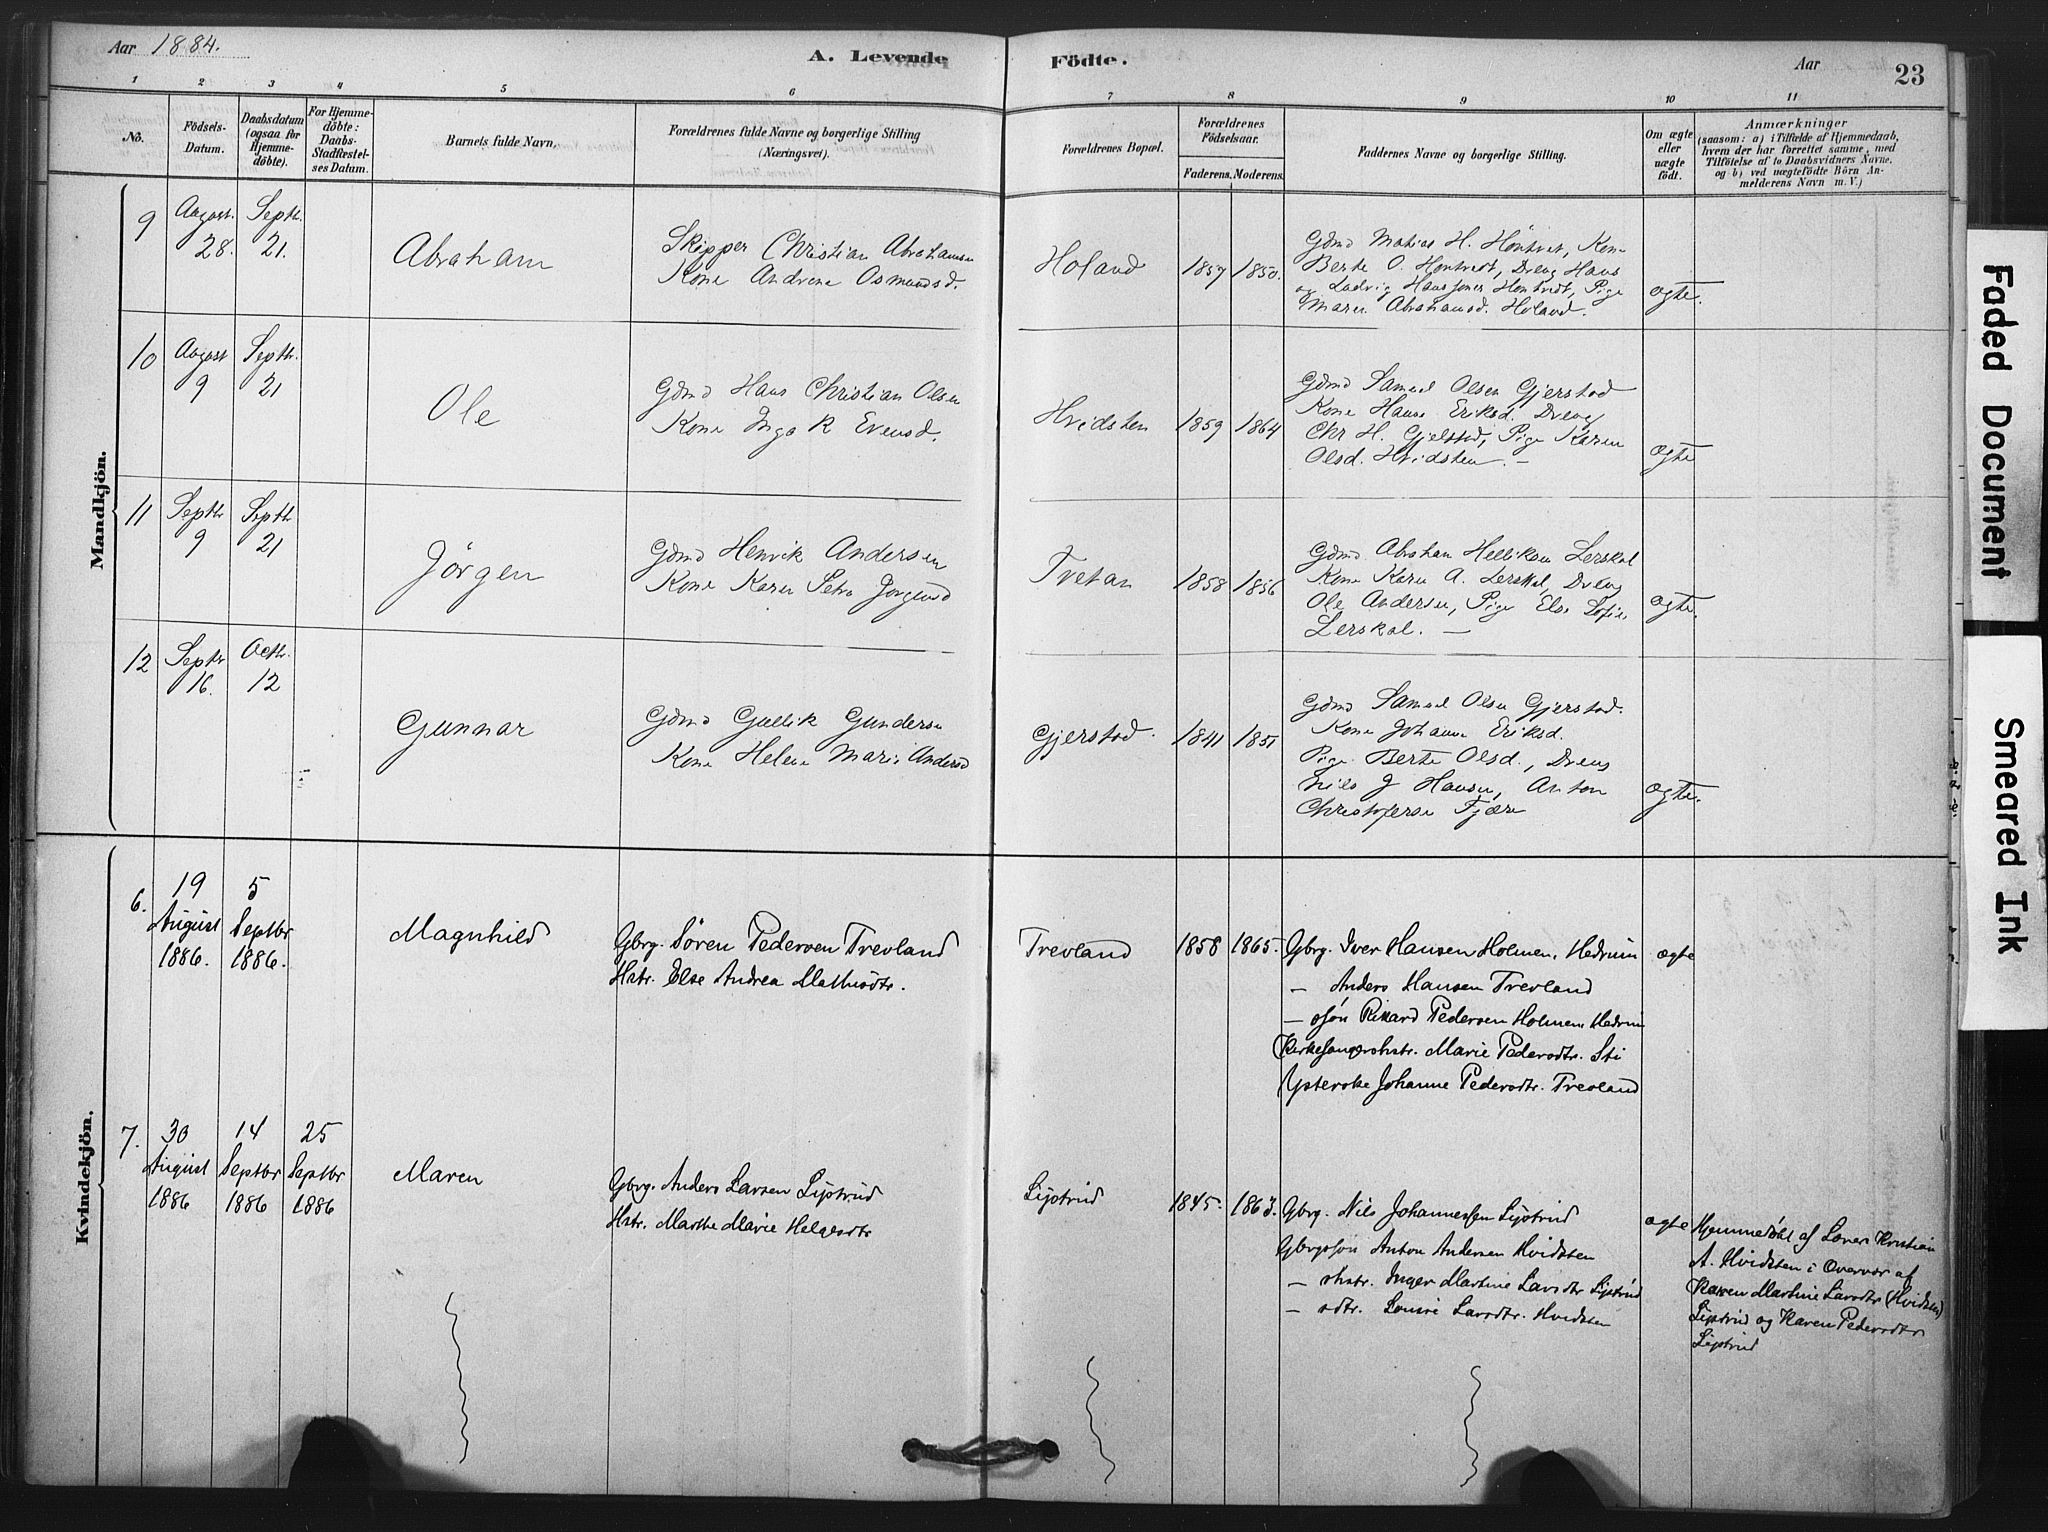 Aar 1884.
A. Levende
Födte.
Aar
23
1 2 3 4 5 6 7 8 9 10 11
No.
Födsels-
Datum.
Daabsdatum
(ogsaa for
Hjemme-
döbte).
For Hjemme-
döbte:
Daabs-
Stadfæstel-
ses Datum.
Barnets fulde Navn.
Forældrenes fulde Navne og borgerlige Stilling
(Næringsvei).
Forældrenes Bopæl.
Forældrenes
Födselsaar.
Faderens. Moderens.
Faddernes Navne og borgerlige Stilling.
Om ægte
eller
uægte
födt.
Anmærkninger
(saasom: a) i Tilfælde af Hjemmedaab,
hvem der har forrettet samme, med
Tilföielse af to Daabsvidners Navne,
og b) ved uægtefödte Börn An-
melderens Navn m. V.)
Mandkjön.
9
August
28.
Septbr.
21.
Abraham
Skipper Christian Abrahamsen
Kone Andrene Osmundsd.
Holand
1857 1850.
Gdmd Matias H. Hontvet, Kone
Berte O. Hontvedt, Dreng Hans
og Ludvig Hanssøner Hontvedt, Pige
Maren Abrahamsd. Holand.
ægte.
10
August
9
Septbr.
21
Ole
Gdmd Hans Christian Olsen
Kone Inga R Evensd.
Hvidsten
1859 1864
Gdmd Samuel Olsen Gjerstad
Kone Hanne Eriksd. Dreng
Chr H. Gjelstad, Pige Karen
Olsd. Hvidsten. —
ægte
11
Septbr
9
Septbr
21
Jörgen
Gdmd Henrik Andersen
Kone Karen Petra Jörgensd
Tvetan
1858 1856
Gdmd Abraham Helliksen Lerskal
Kone Karen A. Lerskal, Dreng
Ole Andersen, Pige Else Sofie
Lerskal. —
ægte.
12
Septbr
16.
Octbr.
12
Gunnar
Gdmd Gullik Gundersen
Kone Helene Marie Andersd
Gjerstad.
1841 1851
Gdmd Samuel Olsen Gjerstad.
Kone Johanne Eriksd.
Pige Berte Olsd., Dreng
Nils J Hansen, Anton
Christofersen Fjære
ægte.
Kvindekjön.
6.
19
August
1886.
5
Septbr
1886.
Magnhild
Gbrg. Sören Pedersen Trevland
Hstr. Else Andrea Mathisdtr.
Trevland
1858 1865.
Gbrg. Iver Hansen Holmen, Hedrum
— Anders Hansen Trevland
— søn Rikard Pedersen Holmen Hedrum
Kirkesangershstr. Marie Pedersdtr. Sti
Ysterske Johanne Pedersdtr. Trevland
ægte
7.
30
August
1886
14
Septbr
1886
25
Septbr
1886
Maren
Gbrg. Anders Larsen Lystrud
Hstr. Marthe Marie Helgesdtr
Lystrud
1845. 1863.
Gbrg. Nils Johannessen Lystrud
Gbrgssøn Anton Andersen Hvidsten
— shstr. Inger Martine Larsdtr Lystrud
— sdtr. Lovise Larsdtr. Hvidsten
ægte
Hjemmedøbt af Lærer Kristian
A. Hvidsten i Overvær af
Karen Martine Larsdtr (Hvidsten)
Lystrud og Karen Pedersdtr
Lystrud
Faded Document
Smeared Ink